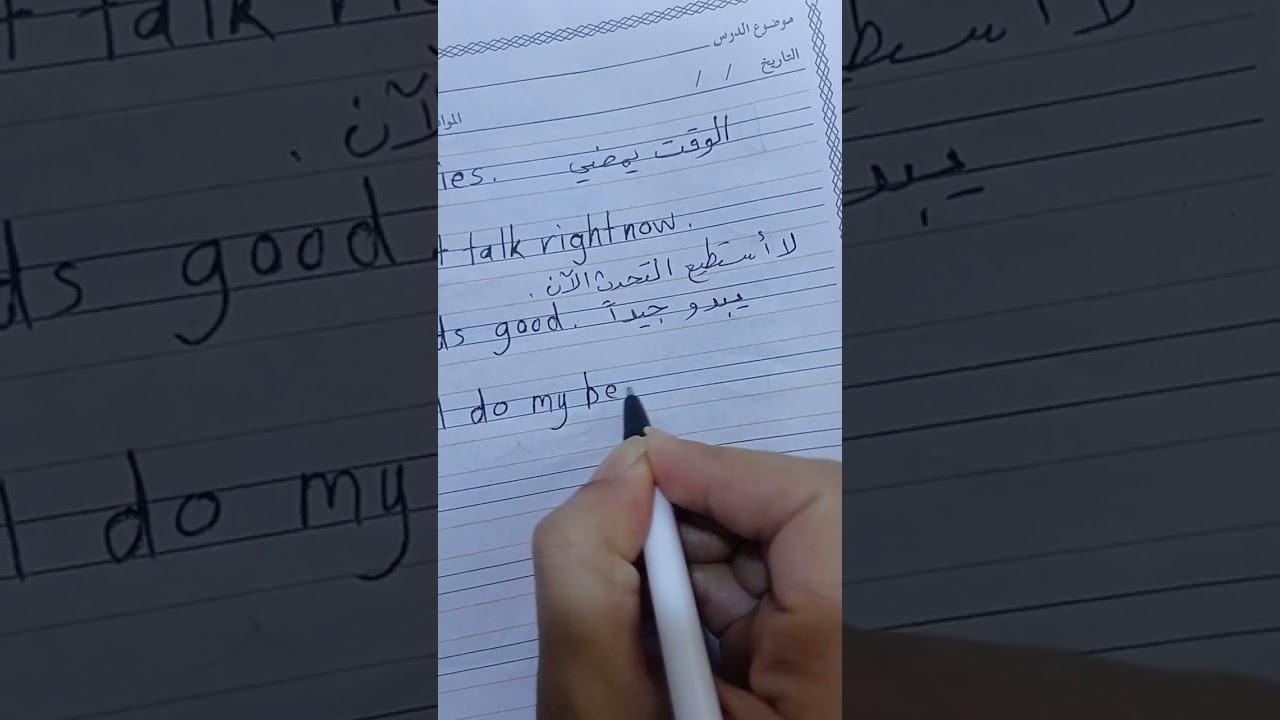 موضوع الدرس
التاريخ / /
ies. الوقت يمضي
talk right now.
لا أستطيع التحدث الآن.
ds good. يبدو جيداً
do my be